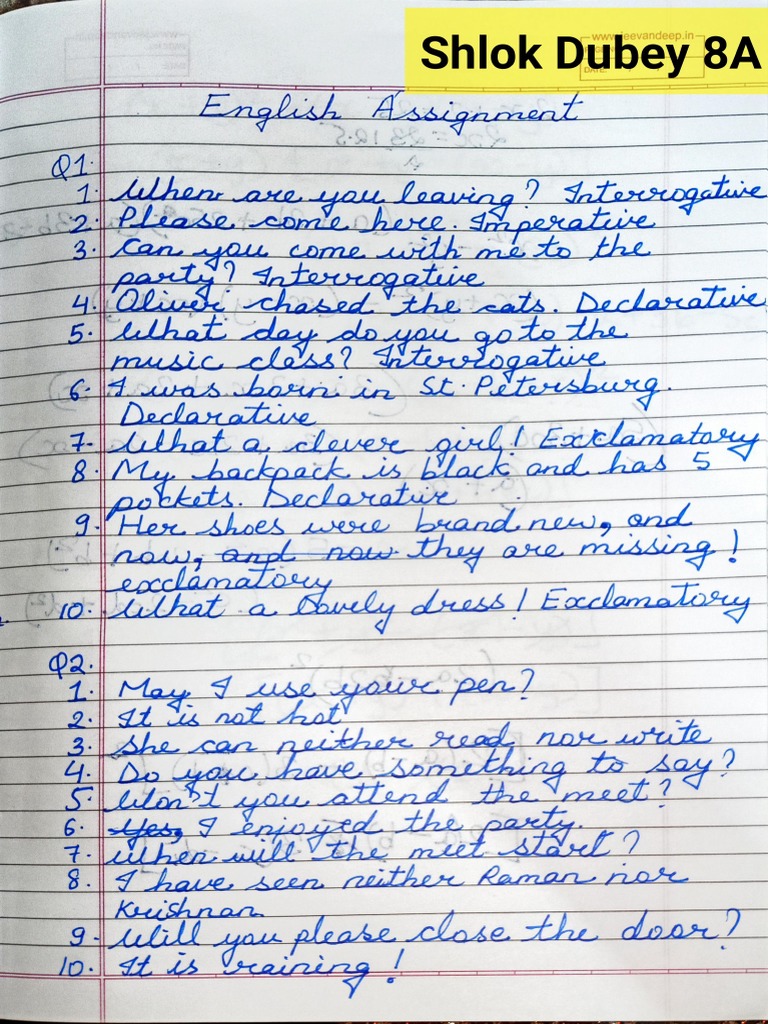 www.jeevandeep.in
Shlok Dubey 8A
DATE:
English Assignment
Q1.
1. When are you leaving? Interrogative
2. Please come here. Imperative
3. Can you come with me to the
party? Interrogative
4. Oliver chased the cats. Declarative
5. What day do you go to the
music class? Interrogative
6. I was born in St. Petersburg.
Declarative
7. What a clever girl! Exclamatory
8. My backpack is black and has 5
pockets. Declarative
9. Her shoes were brand new, and
now, and now they are missing!
exclamatory
10. What a lovely dress! Exclamatory
Q2.
1. May I use your pen?
2. It is not hot
3. She can neither read nor write
4. Do you have something to say?
5. Won't you attend the meet?
6. Yes, I enjoyed the party.
7. When will the meet start?
8. I have seen neither Raman nor
Krishnan
9. Will you please close the door?
10. It is raining!